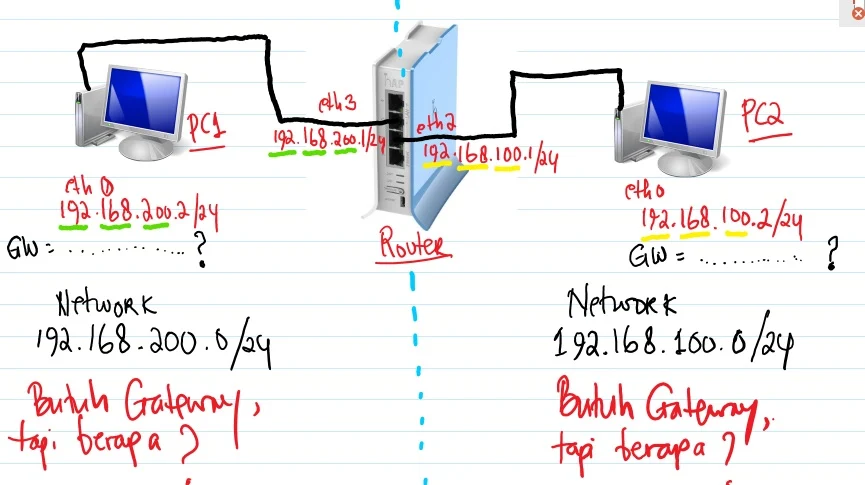 eth3
192.168.200.1/24
PC1
eth2
192.168.100.1/24
PC2
eth0
192.168.200.2/24
GW = .............. ?
Router
eth0
192.168.100.2/24
GW = .............. ?
Network
192.168.200.0/24
Network
192.168.100.0/24
Butuh Gateway,
tapi berapa?
Butuh Gateway,
tapi berapa?